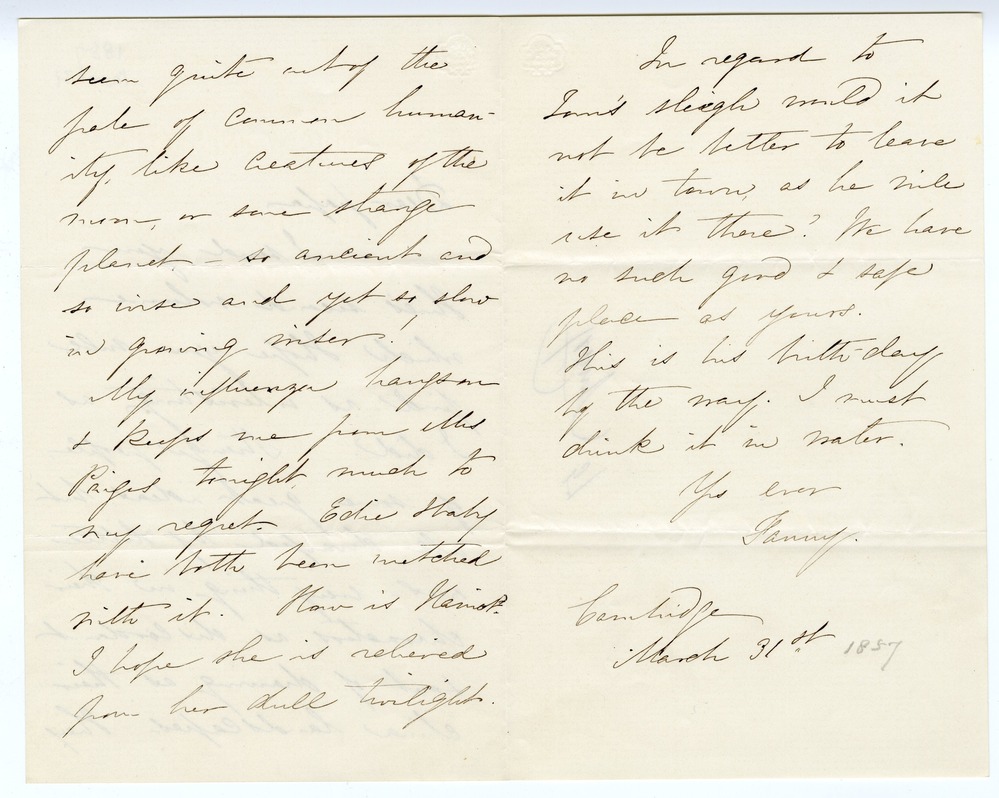 seem quite out of the
pale of common human-
ity, like creatures of the
moon, or some strange
planet – so ancient and
so wise and yet so slow
in growing wiser!
My influenza hangs on
& keeps me from Mrs
Paiges tonight much to
my regret. Edie & baby
have both been wretched
with it. How is Harriot.
I hope she is relieved
from her dull twilight.
In regard to
Tom's sleigh would it
not be better to leave
it in town, as he will
use it there? We have
no such good & safe
place as yours.
This is his birth-day
by the way. I must
drink it in water.
Yrs ever
Fanny.
Cambridge
March 31st 1857